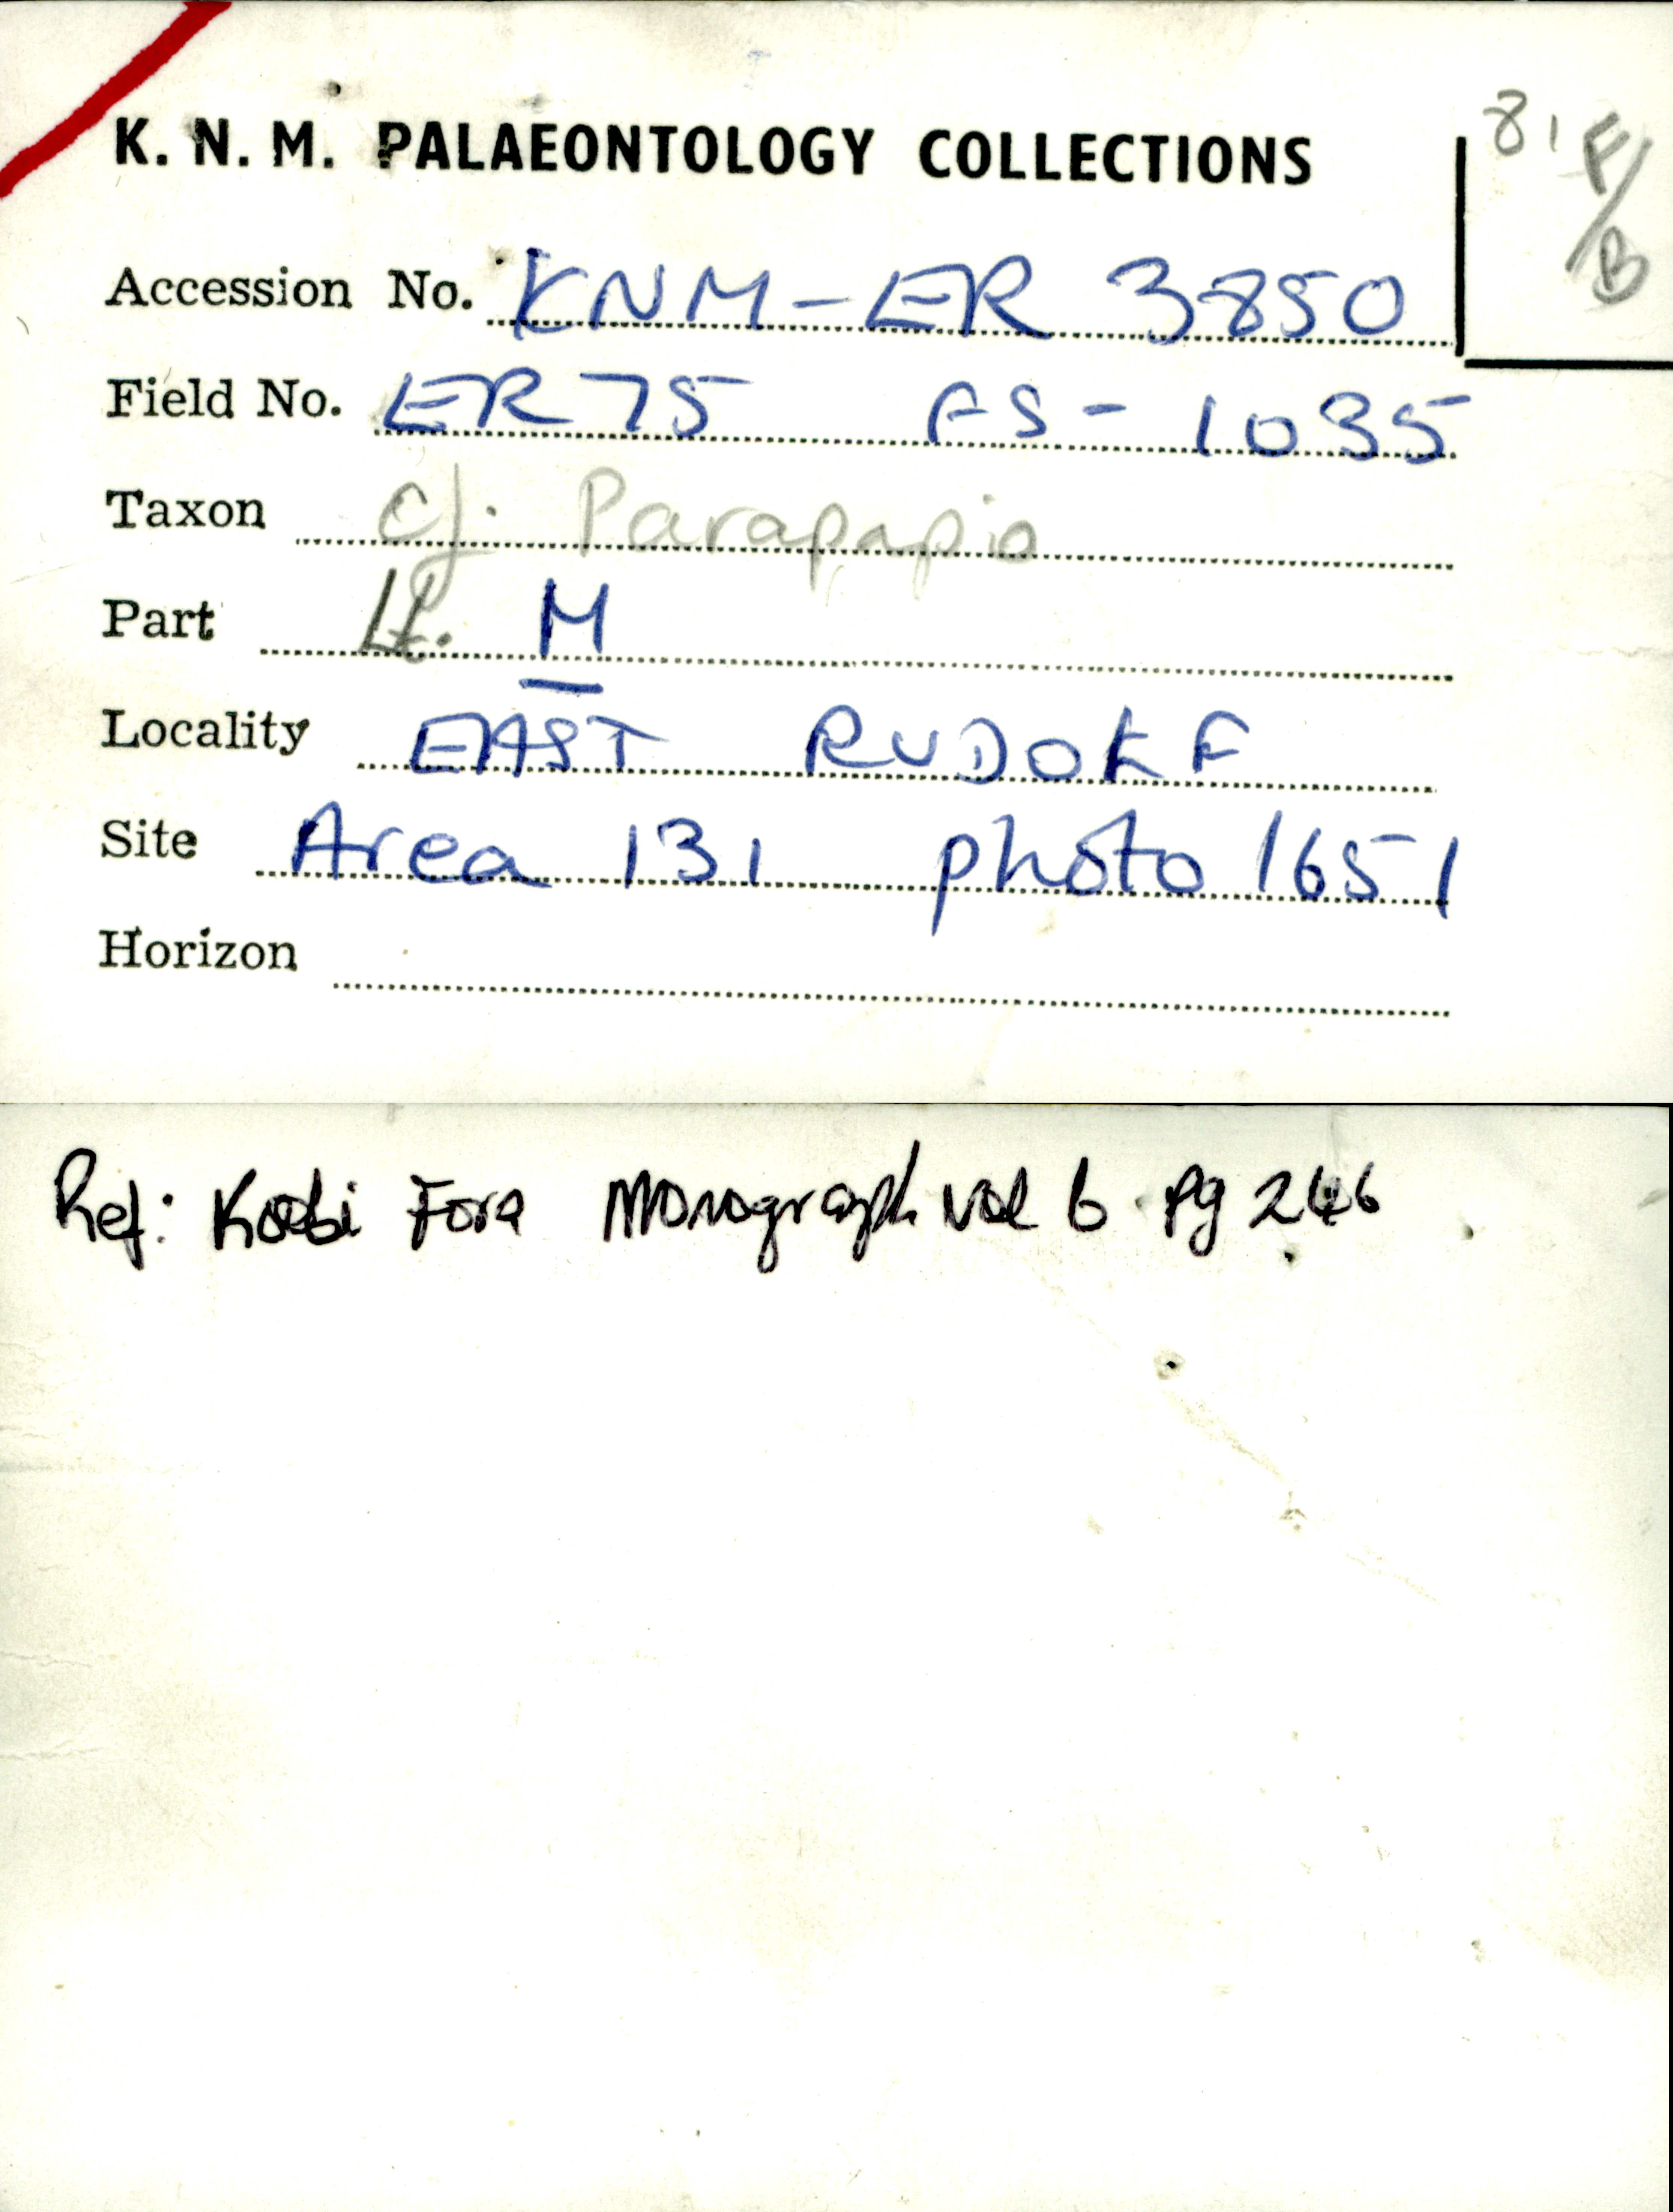 K. N. M. PALAEONTOLOGY COLLECTIONS
81 F/B
Accession No. KNM-ER 3850
Field No. ER 75 FS - 1035
Taxon cf. Parapapio
Part Lt. M
Locality EAST RUDOLF
Site Area 131 photo 1651
Horizon
Ref: Koobi Fora Monograph vol 6 Pg 246